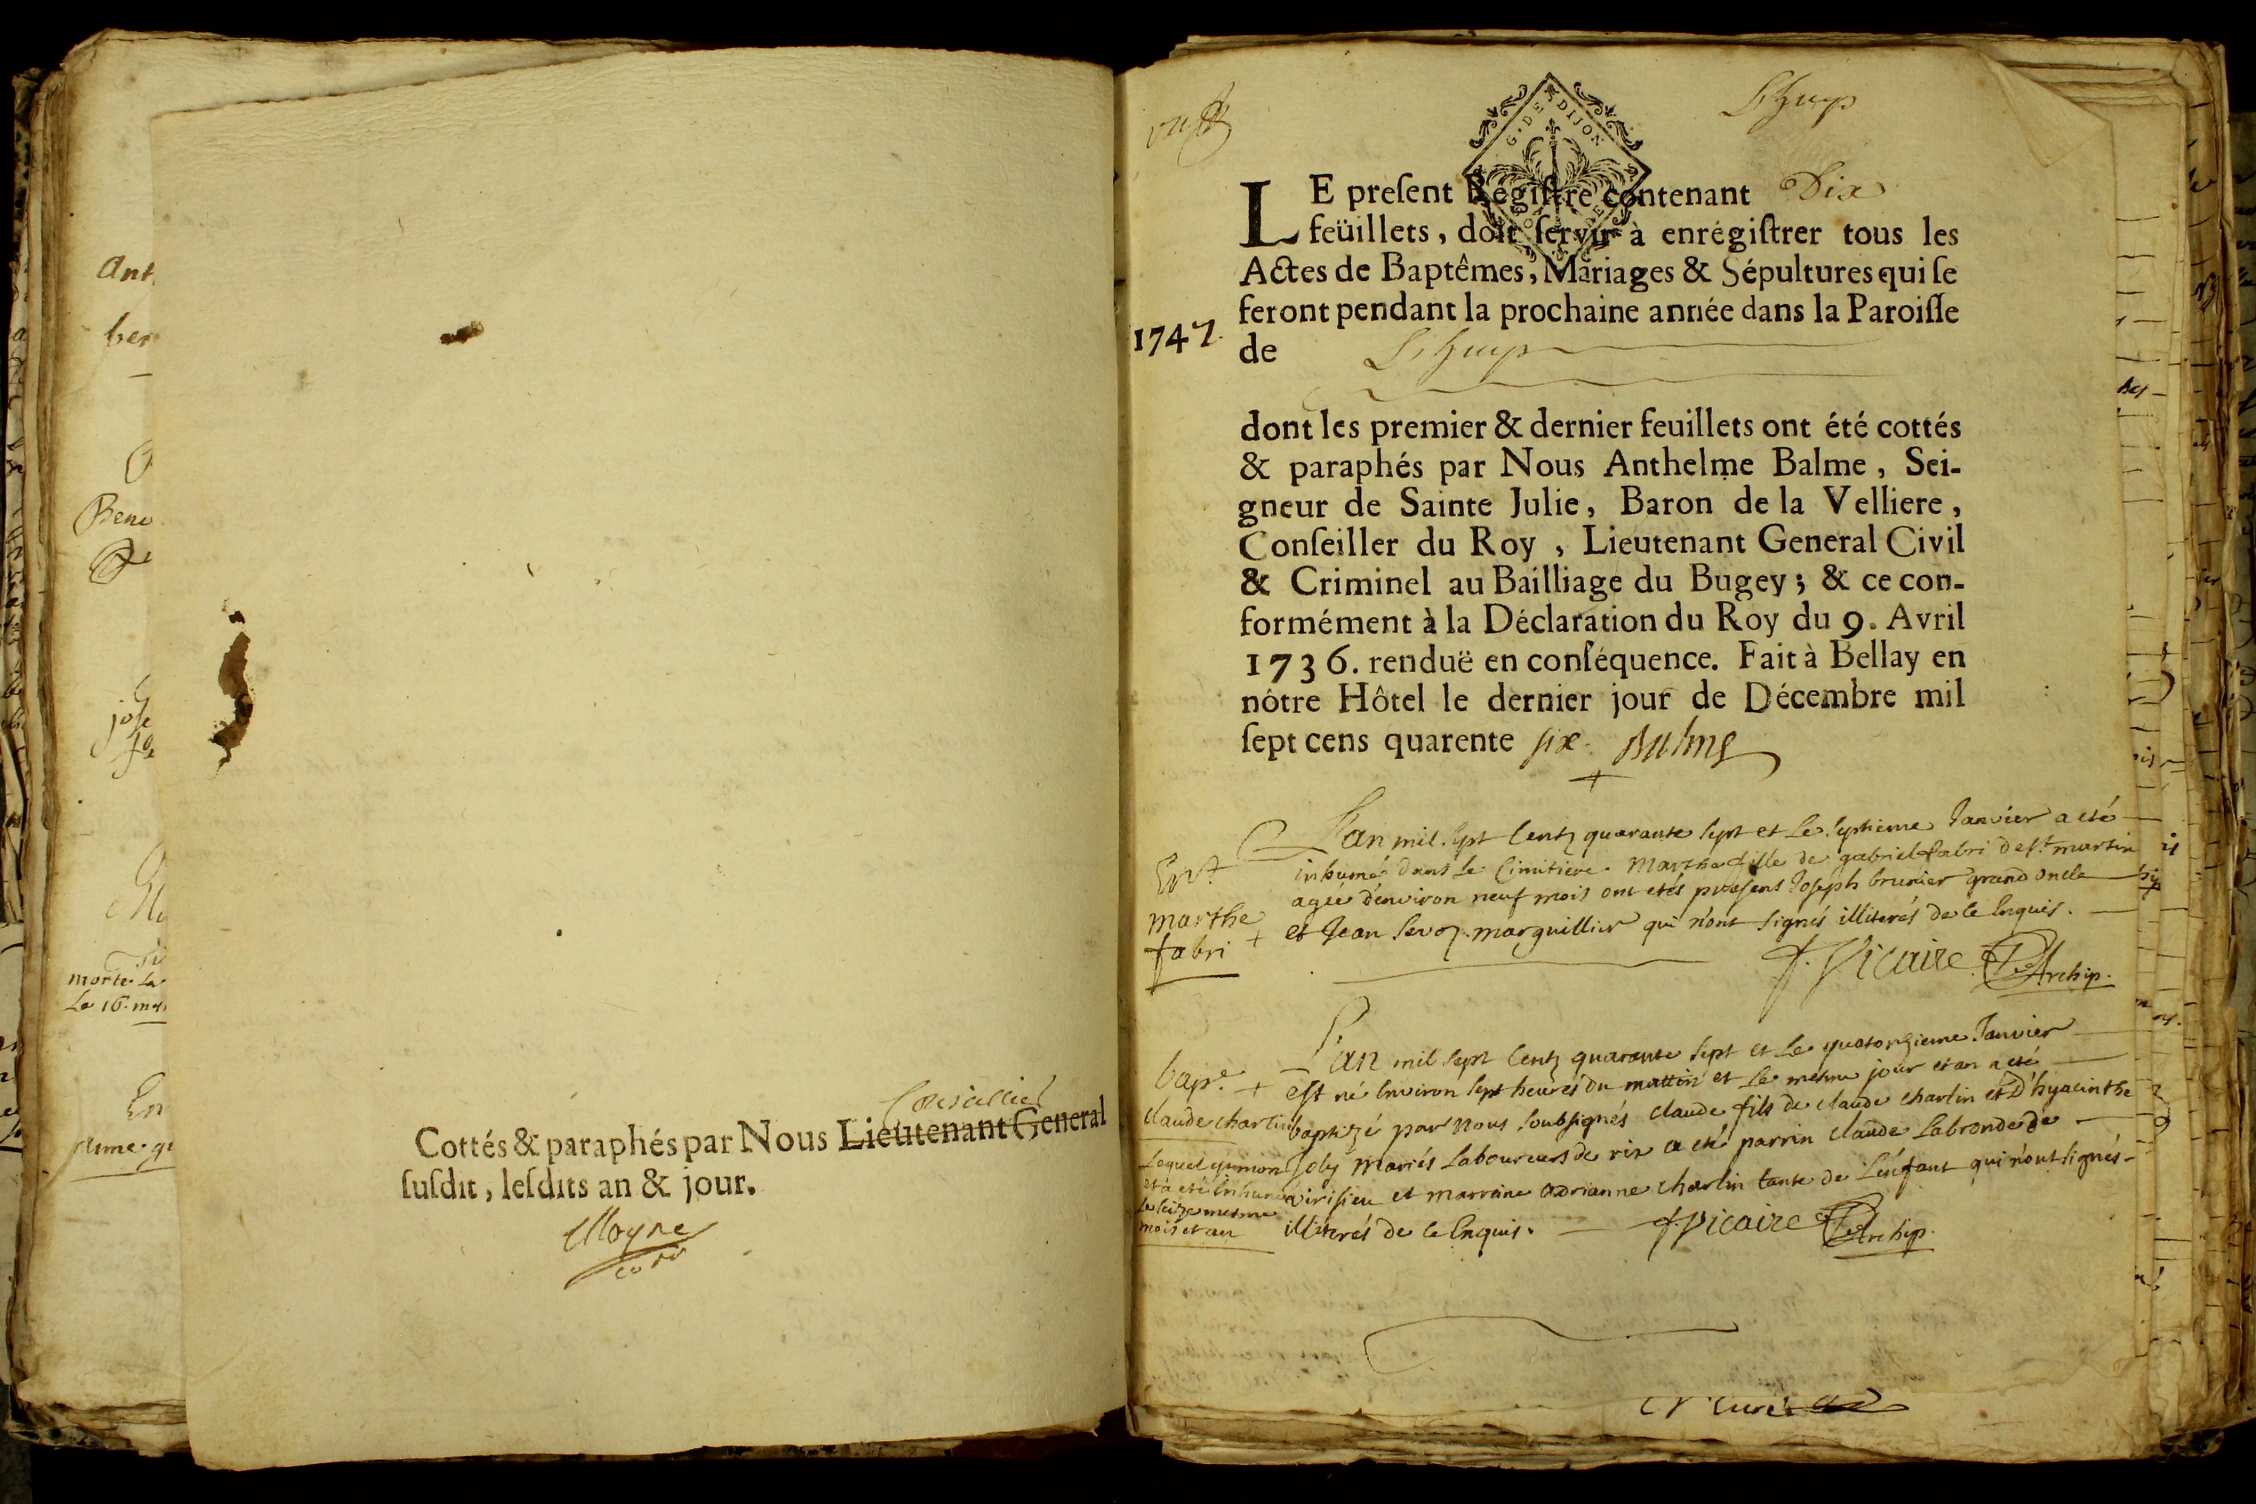 Cottés & paraphés par Nous Lieutenant General
Conseillier
susdit, lesdits an & jour.
Moyne
G. DE DIJON
Lhuys
LE present Régistre contenant Dix
feüillets, doit servir à enrégistrer tous les
Actes de Baptêmes, Mariages & Sépultures qui se
feront pendant la prochaine année dans la Paroisse
1747.
de Lhuys
dont les premier & dernier feuillets ont été cottés
& paraphés par Nous Anthelme Balme, Sei-
gneur de Sainte Julie, Baron de la Velliere,
Conseiller du Roy, Lieutenant General Civil
& Criminel au Bailliage du Bugey; & ce con-
formément à la Déclaration du Roy du 9. Avril
1736. renduë en conséquence. Fait à Bellay en
nôtre Hôtel le dernier jour de Décembre mil
sept cens quarente six. Balme
Ent.
marthe
fabri
L'an mil sept Centz quarante sept et Le septieme Janvier a eté
inhumée dans Le Cimitiere Marthe fille de gabriel fabri de st. martin
agée d'environ neuf mois ont etés presens Joseph brunier grand oncle
et Jean marguillier qui n'ont signés illiterés de ce Enquis.
f. Vicaire Archip.
bape.
claude charlin
Lequel est mort
et a eté Enhumé
Le seize mesme
mois et an
L'an mil sept Centz quarante sept et Le quatorzieme Janvier
est né Environ sept heures du mattin et Le mesme jour et an a eté
baptizé par nous soubsignés claude fils de claude charlin et D'hyacinthe
Joly mariés Laboureurs de rix a eté parrin claude Labronde de
virisieu et marraine adrianne charlin tante de L'enfant qui n'ont signés
illiterés de ce Enquis. f Vicaire Archip.